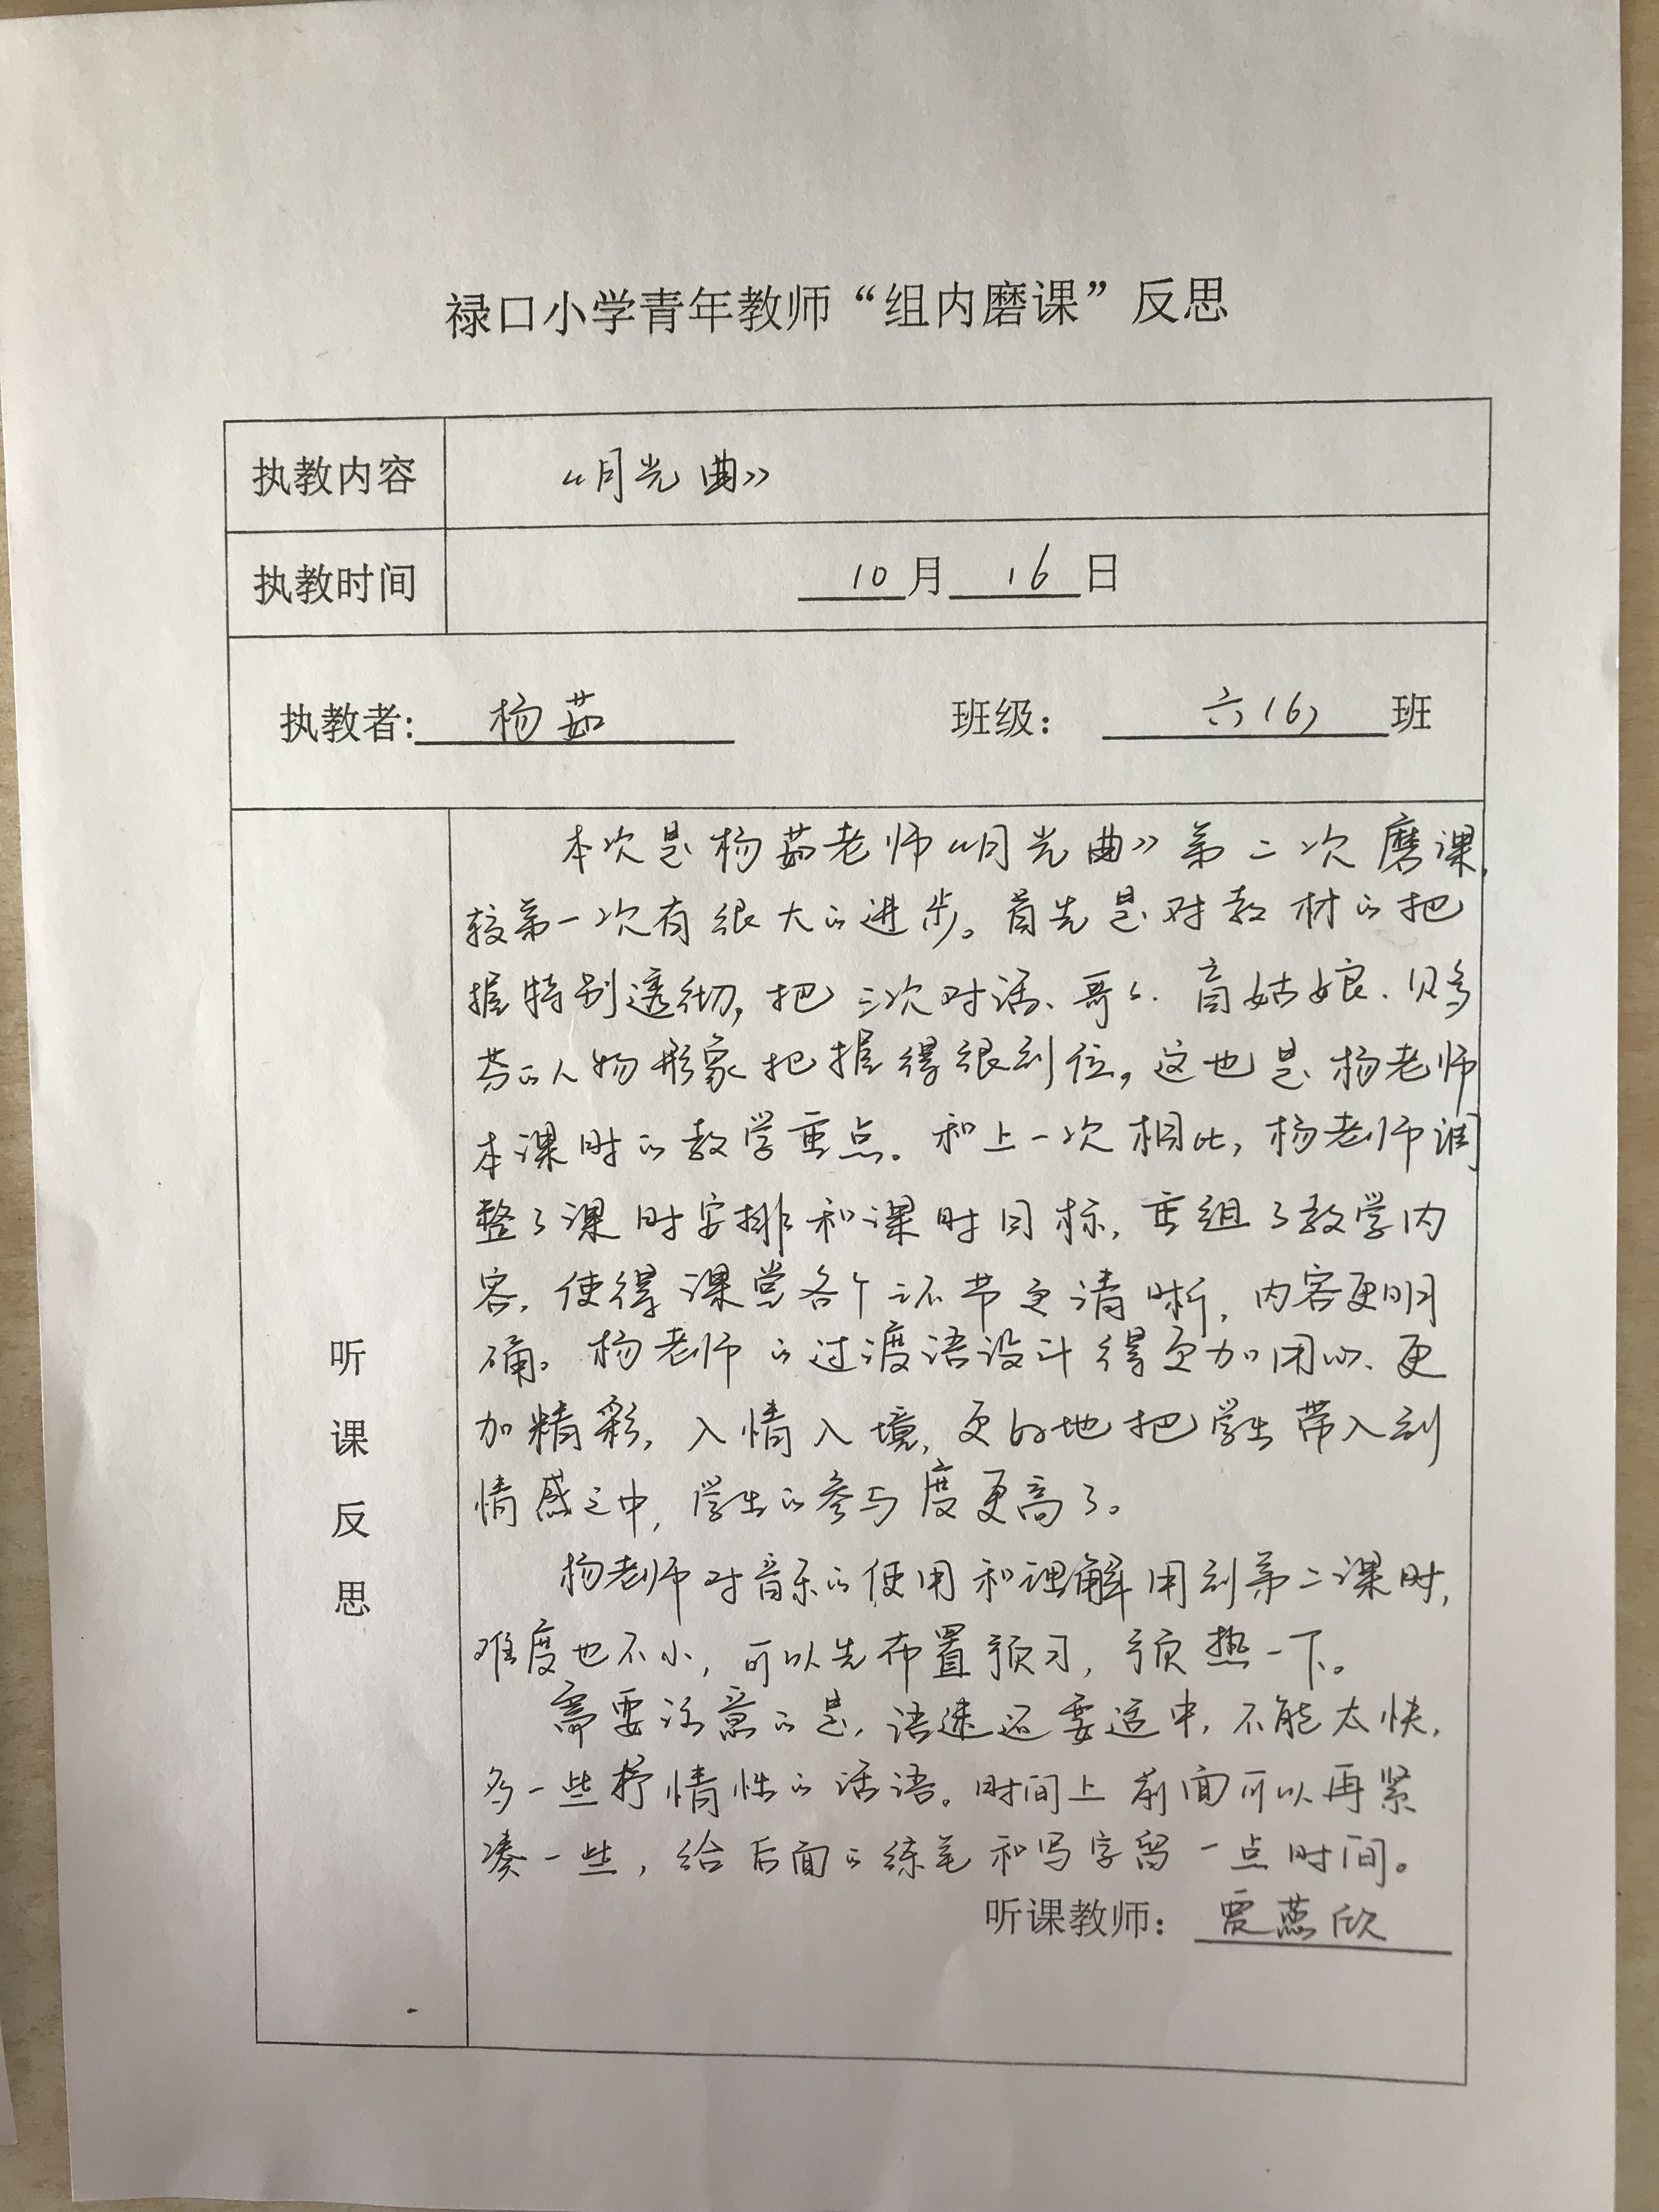 禄口小学青年教师“组内磨课”反思
执教内容 《月光曲》
执教时间 10月16日
执教者: 杨茹 班级: 六(6)班
听课反思
本次是杨茹老师《月光曲》第二次磨课,
较第一次有很大的进步。首先是对教材的把
握特别透彻,把三次对话、哥哥、盲姑娘、贝多
芬的人物形象把握得很到位,这也是杨老师
本课时的教学重点。和上一次相比,杨老师调
整了课时安排和课时目标,重组了教学内
容,使得课堂各个环节更清晰,内容更明
确。杨老师的过渡语设计得更加用心、更
加精彩,入情入境,更好地把学生带入到
情感之中,学生的参与度更高了。
杨老师对音乐的使用和理解用到第二课时,
难度也不小,可以先布置预习,预热一下。
需要注意的是,语速还要适中,不能太快,
多一些抒情性的话语。时间上前面可以再紧
凑一些,给后面的练笔和写字留一点时间。
听课教师: 贾燕欣